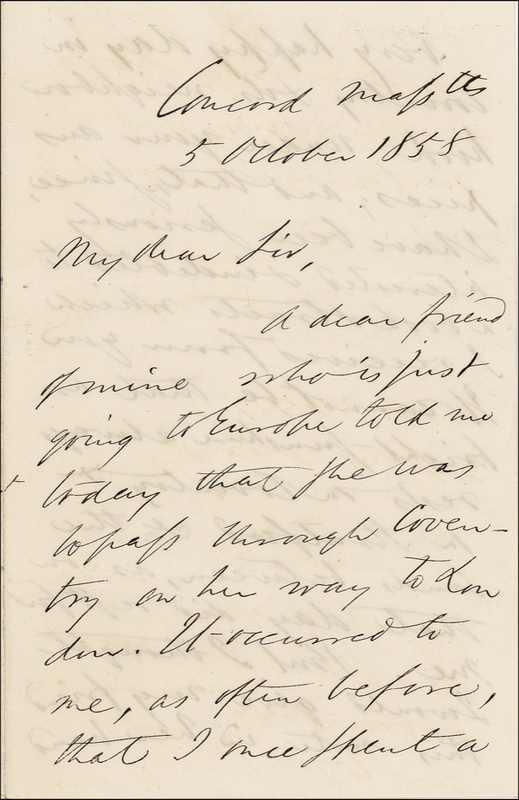 Concord Masstts
5 October 1858
My dear Sir,
A dear friend
of mine who is just
going to Europe told me
today that she was
to pass through Coven-
try on her way to Lon
don. It occurred to
me, as often before,
that I once spent a